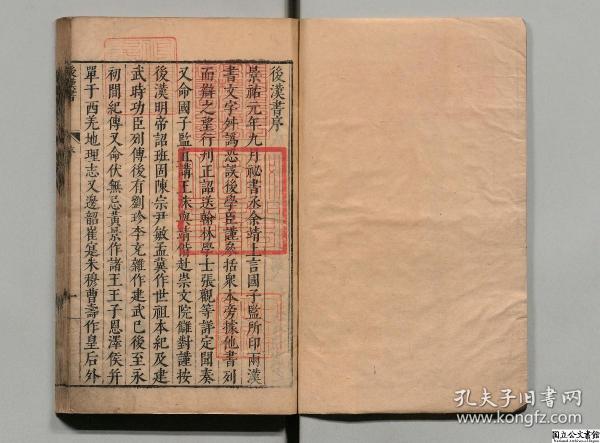 後漢書序
景祐元年九月祕書丞余靖上言國子監所印兩漢
書文字舛譌恐誤後學臣謹參括衆本旁據他書列
而辯之望行刋正詔送翰林學士張觀等詳定聞奏
又命國子監直講王洙與靖偕赴崇文院讎對謹按
後漢明帝詔班固陳宗尹敏孟冀作世祖本紀及建
武時功臣列傳後有劉珍李充雜作建武已後至永
初間紀傳又命伏無忌黃景作諸王王子恩澤侯并
單于西羌地理志又邊韶崔寔朱穆曹壽作皇后外
後漢書
序
一
孔夫子旧书网
www.kongfz.com
国立公文書館
National Archives of Japan